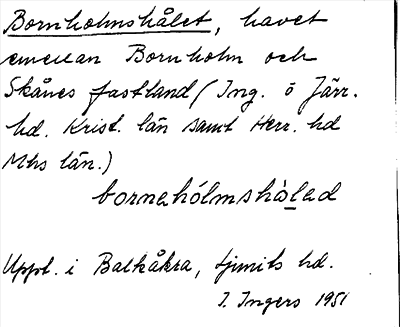 Bornholmshålet, havet
emellan Bornholm och
Skånes fastland (Ing. ö Järr.
hd. Krist. län samt Herr. hd
Mhs län.)
bornahólmshòlad
Uppt. i Balkåkra, Ljunits hd.
I. Ingers 1951